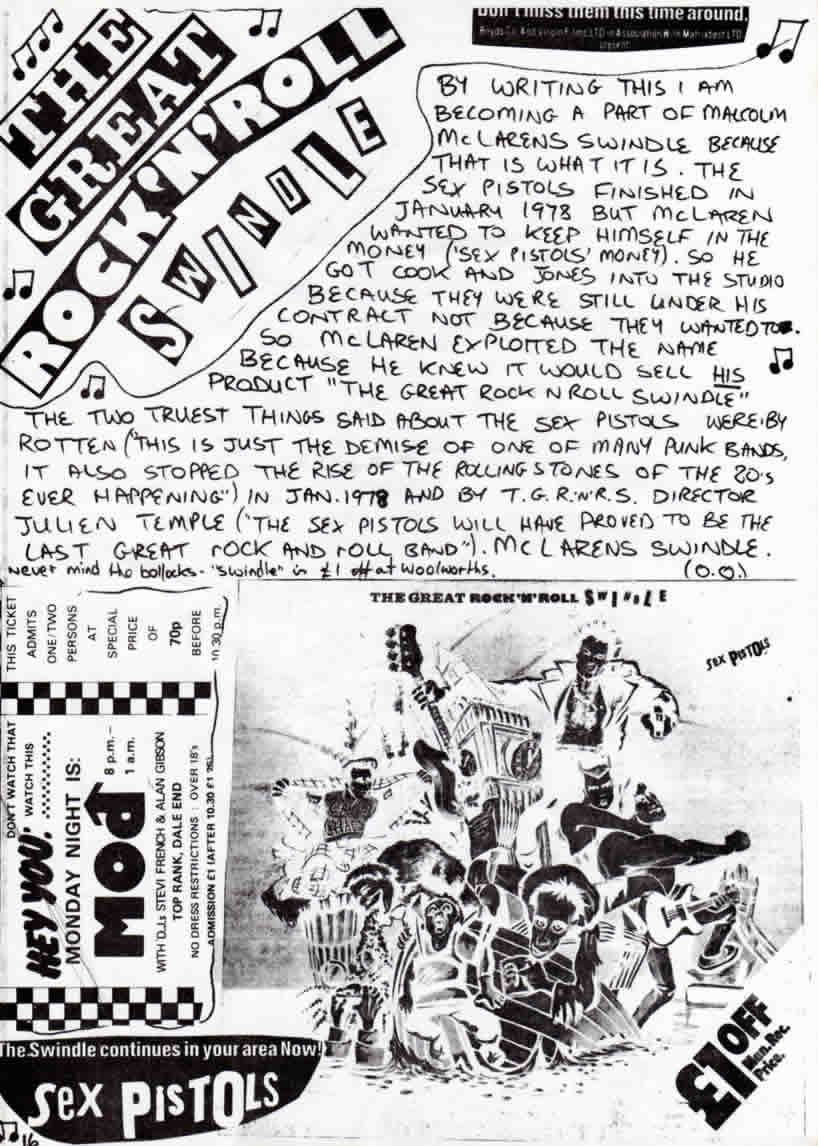 THE
GREAT
ROCK'N'ROLL
SWINDLE
Don't miss them this time around.
present
BY WRITING THIS I AM
BECOMING A PART OF MALCOLM
McLARENS SWINDLE BECAUSE
THAT IS WHAT IT IS. THE
SEX PISTOLS FINISHED IN
JANUARY 1978 BUT McLAREN
WANTED TO KEEP HIMSELF IN THE
MONEY ('SEX PISTOLS' MONEY). SO HE
GOT COOK AND JONES INTO THE STUDIO
BECAUSE THEY WERE STILL UNDER HIS
CONTRACT NOT BECAUSE THEY WANTED TO.
SO McLAREN EXPLOITED THE NAME
BECAUSE HE KNEW IT WOULD SELL HIS
PRODUCT "THE GREAT ROCK N ROLL SWINDLE"
THE TWO TRUEST THINGS SAID ABOUT THE SEX PISTOLS WERE:BY
ROTTEN ("THIS IS JUST THE DEMISE OF ONE OF MANY PUNK BANDS,
IT ALSO STOPPED THE RISE OF THE ROLLING STONES OF THE 80's
EVER HAPPENING") IN JAN.1978 AND BY T.G.R.'N'R.S. DIRECTOR
JULIEN TEMPLE ("THE SEX PISTOLS WILL HAVE PROVED TO BE THE
LAST GREAT ROCK AND ROLL BAND"). MCLARENS SWINDLE.
Never mind the bollocks - "swindle" is £1 off at Woolworths.
(O.O.)
THIS TICKET
ADMITS
ONE/TWO
PERSONS
AT
SPECIAL
PRICE
OF
70p
BEFORE
10.30 p.m.
DON'T WATCH THAT
HEY YOU! WATCH THIS
MONDAY NIGHT IS:
MOD 8 p.m.–
1 a.m.
WITH DJs STEVI FRENCH & ALAN GIBSON
TOP RANK, DALE END
NO DRESS RESTRICTIONS : OVER 18's
ADMISSION £1 (AFTER 10.30 £1.25)
THE GREAT ROCK'N'ROLL SWINDLE
SEX PISTOLS
£1 OFF
Man. Rec.
Price.
The Swindle continues in your area Now!
SEX PISTOLS
16